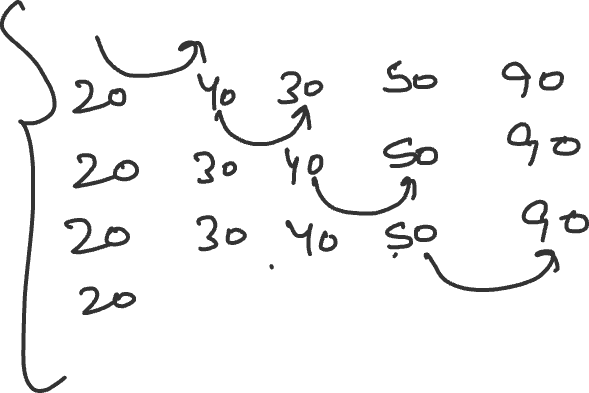 20 40 30 50 90
20 30 40 50 90
20 30 40 50 90
20